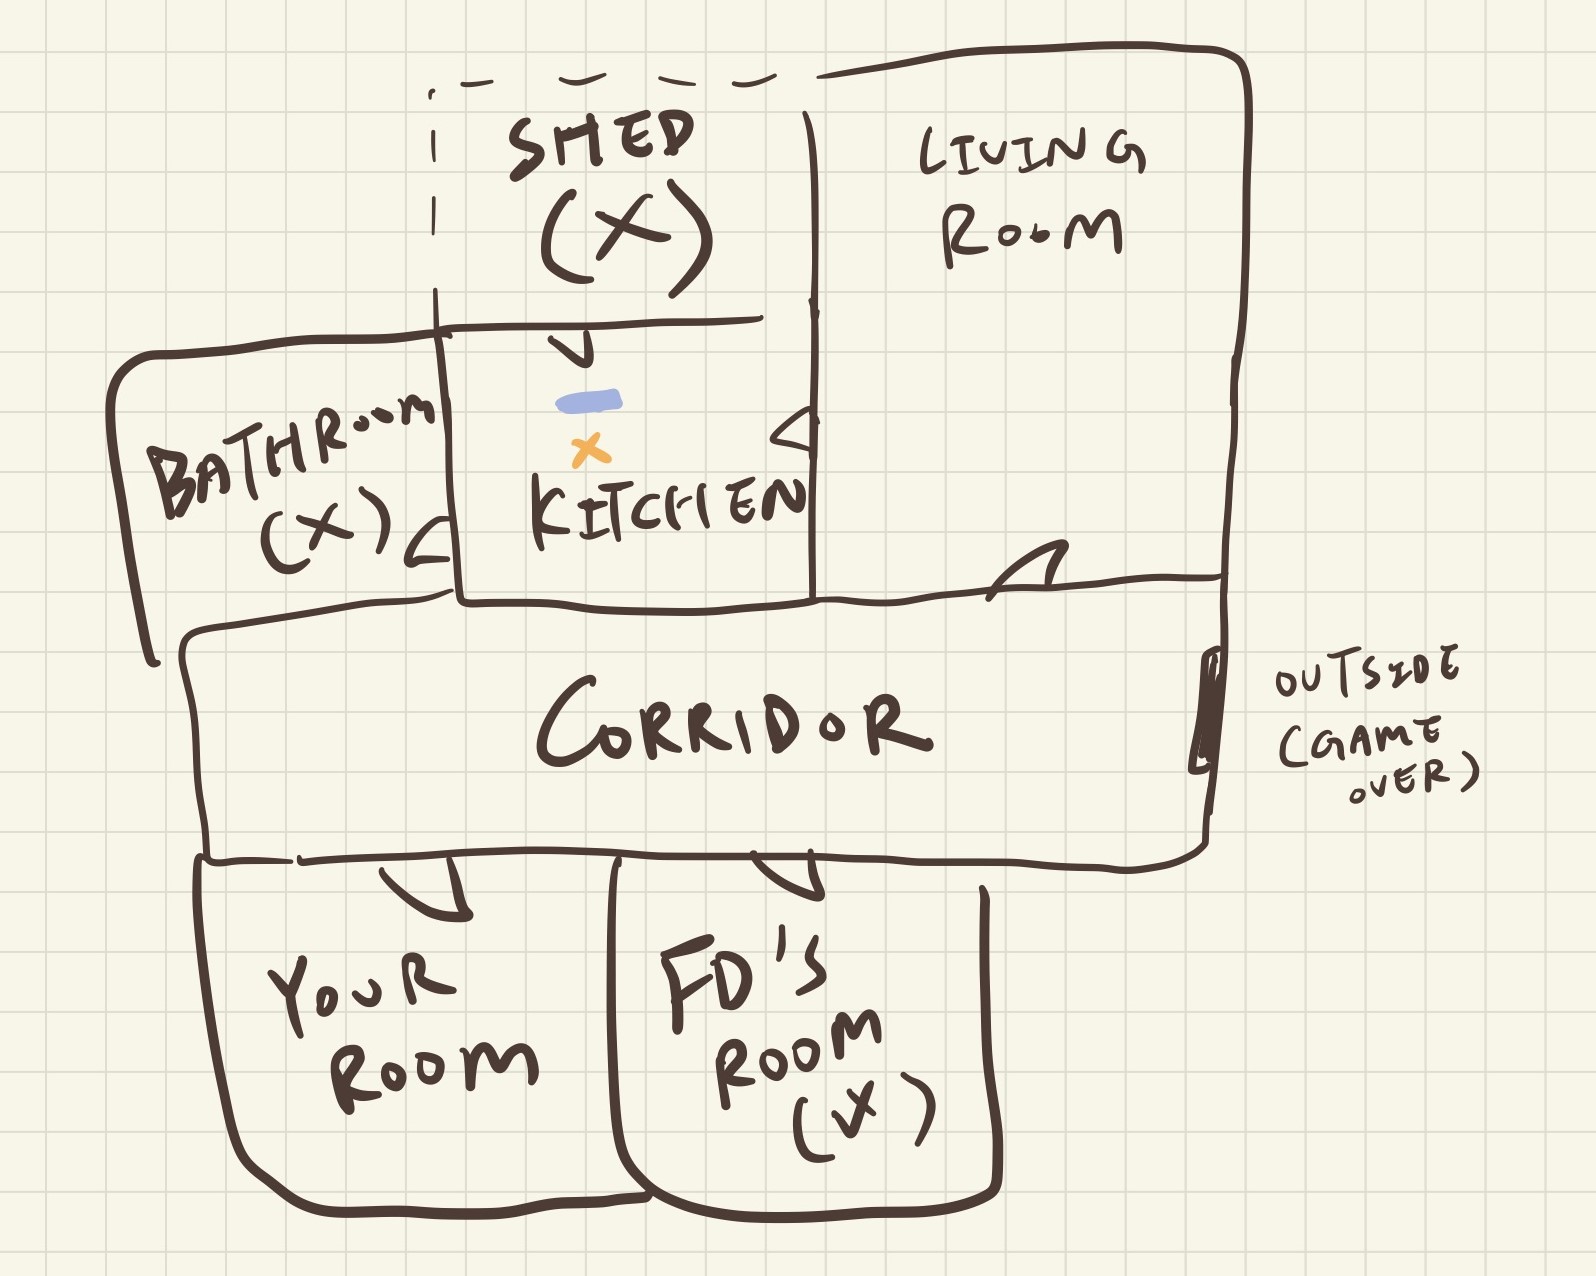 SHED
(X)
LIVING
ROOM
BATHROOM
(X)
X
KITCHEN
CORRIDOR
OUTSIDE
(GAME
OVER)
YOUR
ROOM
FD'S
ROOM
(X)